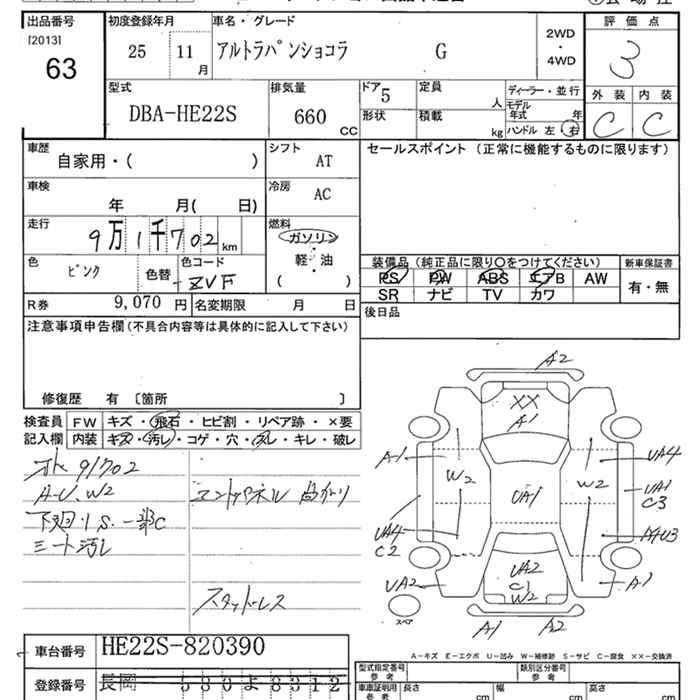 出品番号 初度登録年月 車名・グレード 評価点
[2013]
63
25 11 月
アルトラパンショコラ G
2WD
・
4WD
3
型式 排気量 ドア 5 定員 人 ディーラー・並行
DBA-HE22S 660 CC
形状 積載 kg
モデル年式 年
ハンドル 左・右
外装 内装
C C
車歴 自家用・( ) シフト AT
セールスポイント (正常に機能するものに限ります)
車検 年 月( 日) 冷房 AC
走行 9万1千702 km 燃料 ガソリン
軽・油
( )
色 ピンク 色替 色コード ZVF
装備品 (純正品に限り〇をつけてください) 新車保証書
PS PW ABS エアB AW 有・無
SR ナビ TV カワ
R券 9,070 円 名変期限 月 日
後日品
注意事項申告欄 (不具合内容等は具体的に記入して下さい)
修復歴 有 〔箇所 〕
検査員 FW キズ・飛石・ヒビ割・リペア跡・×要
記入欄 内装 キズ・汚レ・コゲ・穴・スレ・キレ・破レ
91702
A-U. W2
下廻・S. 一部C
シート汚レ
スタッドレス
A2
XX
A1
A-1
W2
W2
UA4
UA1
C3
UA1
UA4
C2
UA2
UA2
C1
W2
A1
スペア
A1 A2
A-キズ E-エクボ U-凹み W-補修跡 S-サビ C-腐食 ××-交換済
車台番号 HE22S-820390
登録番号 長岡 580 よ 8312
型式指定番号 参考 類別区分番号 参考
車庫証明用 参考 長さ cm 幅 cm 高さ cm